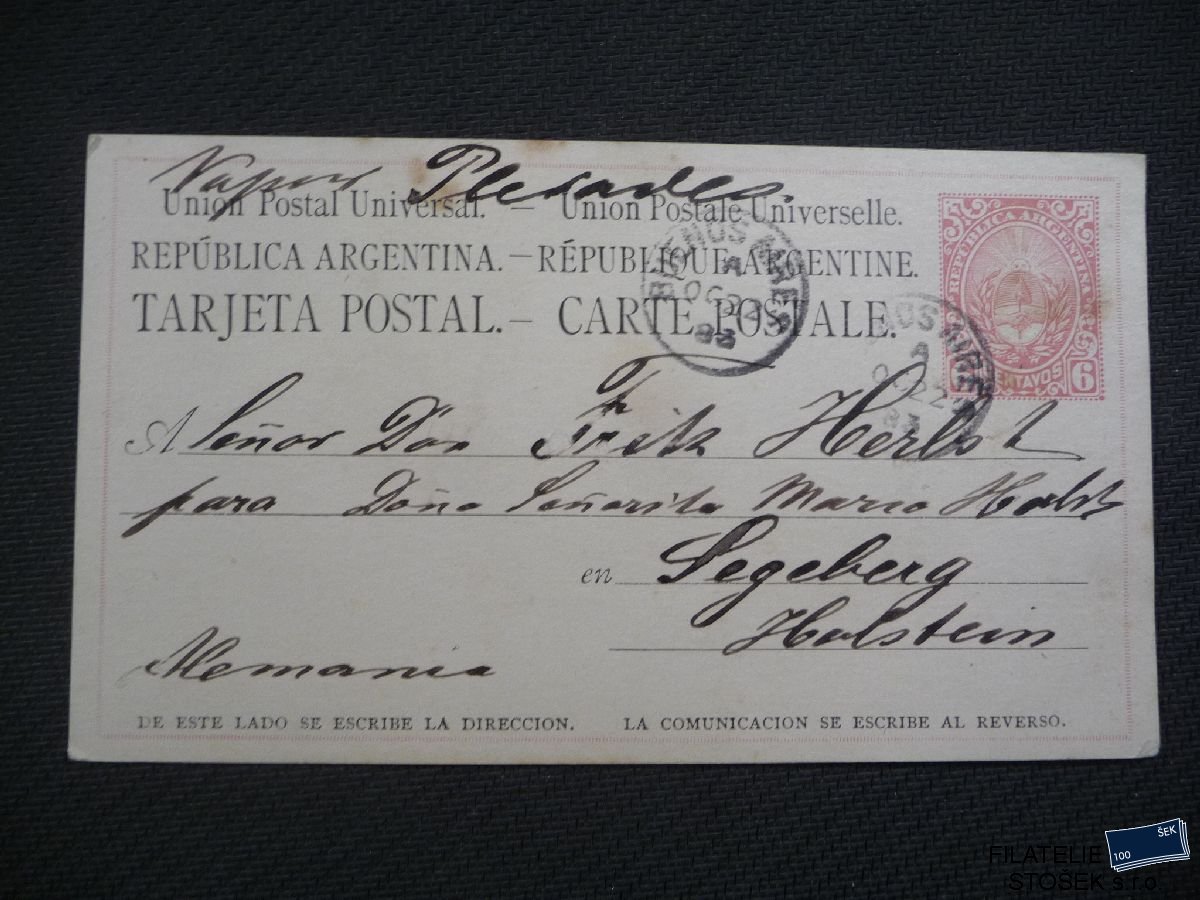 Vapor Pleiades.
Union Postal Universal. — Union Postale Universelle.
REPÚBLICA ARGENTINA. — RÉPUBLIQUE ARGENTINE.
TARJETA POSTAL. — CARTE POSTALE.
REPÚBLICA ARGENTINA
6 CENTAVOS 6
BUENOS AIRES
A
OC 22
83
BUENOS AIRES
A
OC 22
83
A Señor Don Fritz Herbst
para Doña Señorita
en Segeberg
Holstein
Alemania
DE ESTE LADO SE ESCRIBE LA DIRECCION. LA COMUNICACION SE ESCRIBE AL REVERSO.
100 ŠEK
FILATELIE
STOŠEK s.r.o.